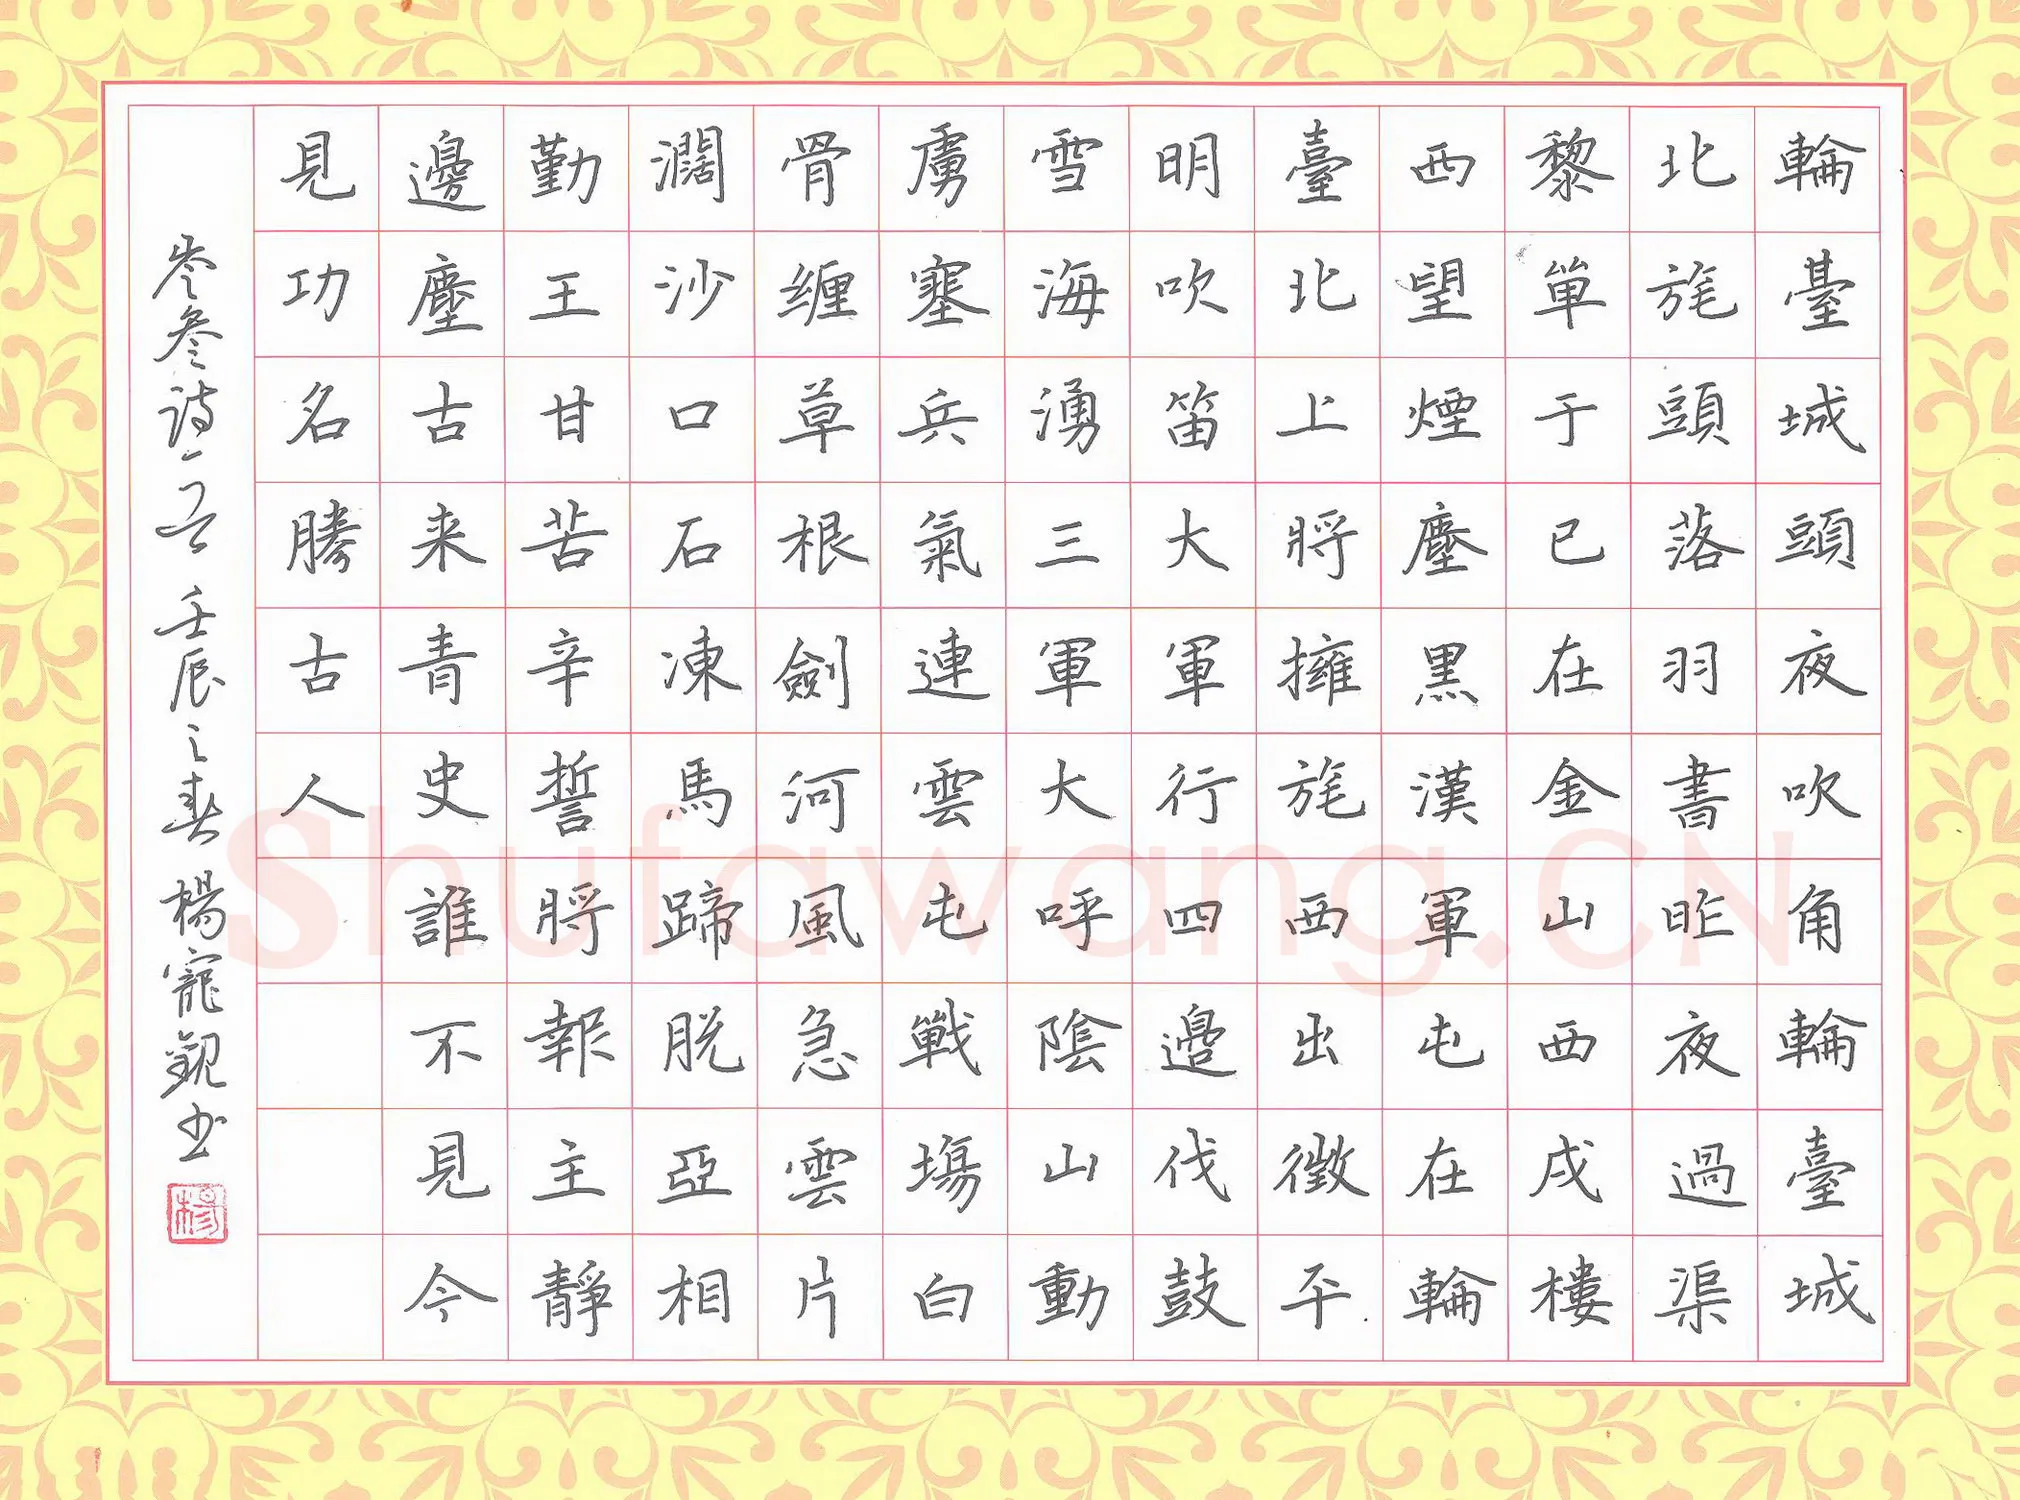 輪臺城頭夜吹角輪臺城
北旄頭落羽書昨夜過渠
黎單于已在金山西戍樓
西望煙塵黑漢軍屯在輪
臺北上將擁旄西出徵平
明吹笛大軍行四邊伐鼓
雪海湧三軍大呼陰山動
虜塞兵氣連雲屯戰場白
骨缠草根劍河風急雲片
濶沙口石凍馬蹄脱亞相
勤王甘苦辛誓將報主靜
邊塵古来青史誰不見今
見功名勝古人
岑參詩一首 壬辰之春 楊寵觀书
楊
Shufawang.CN